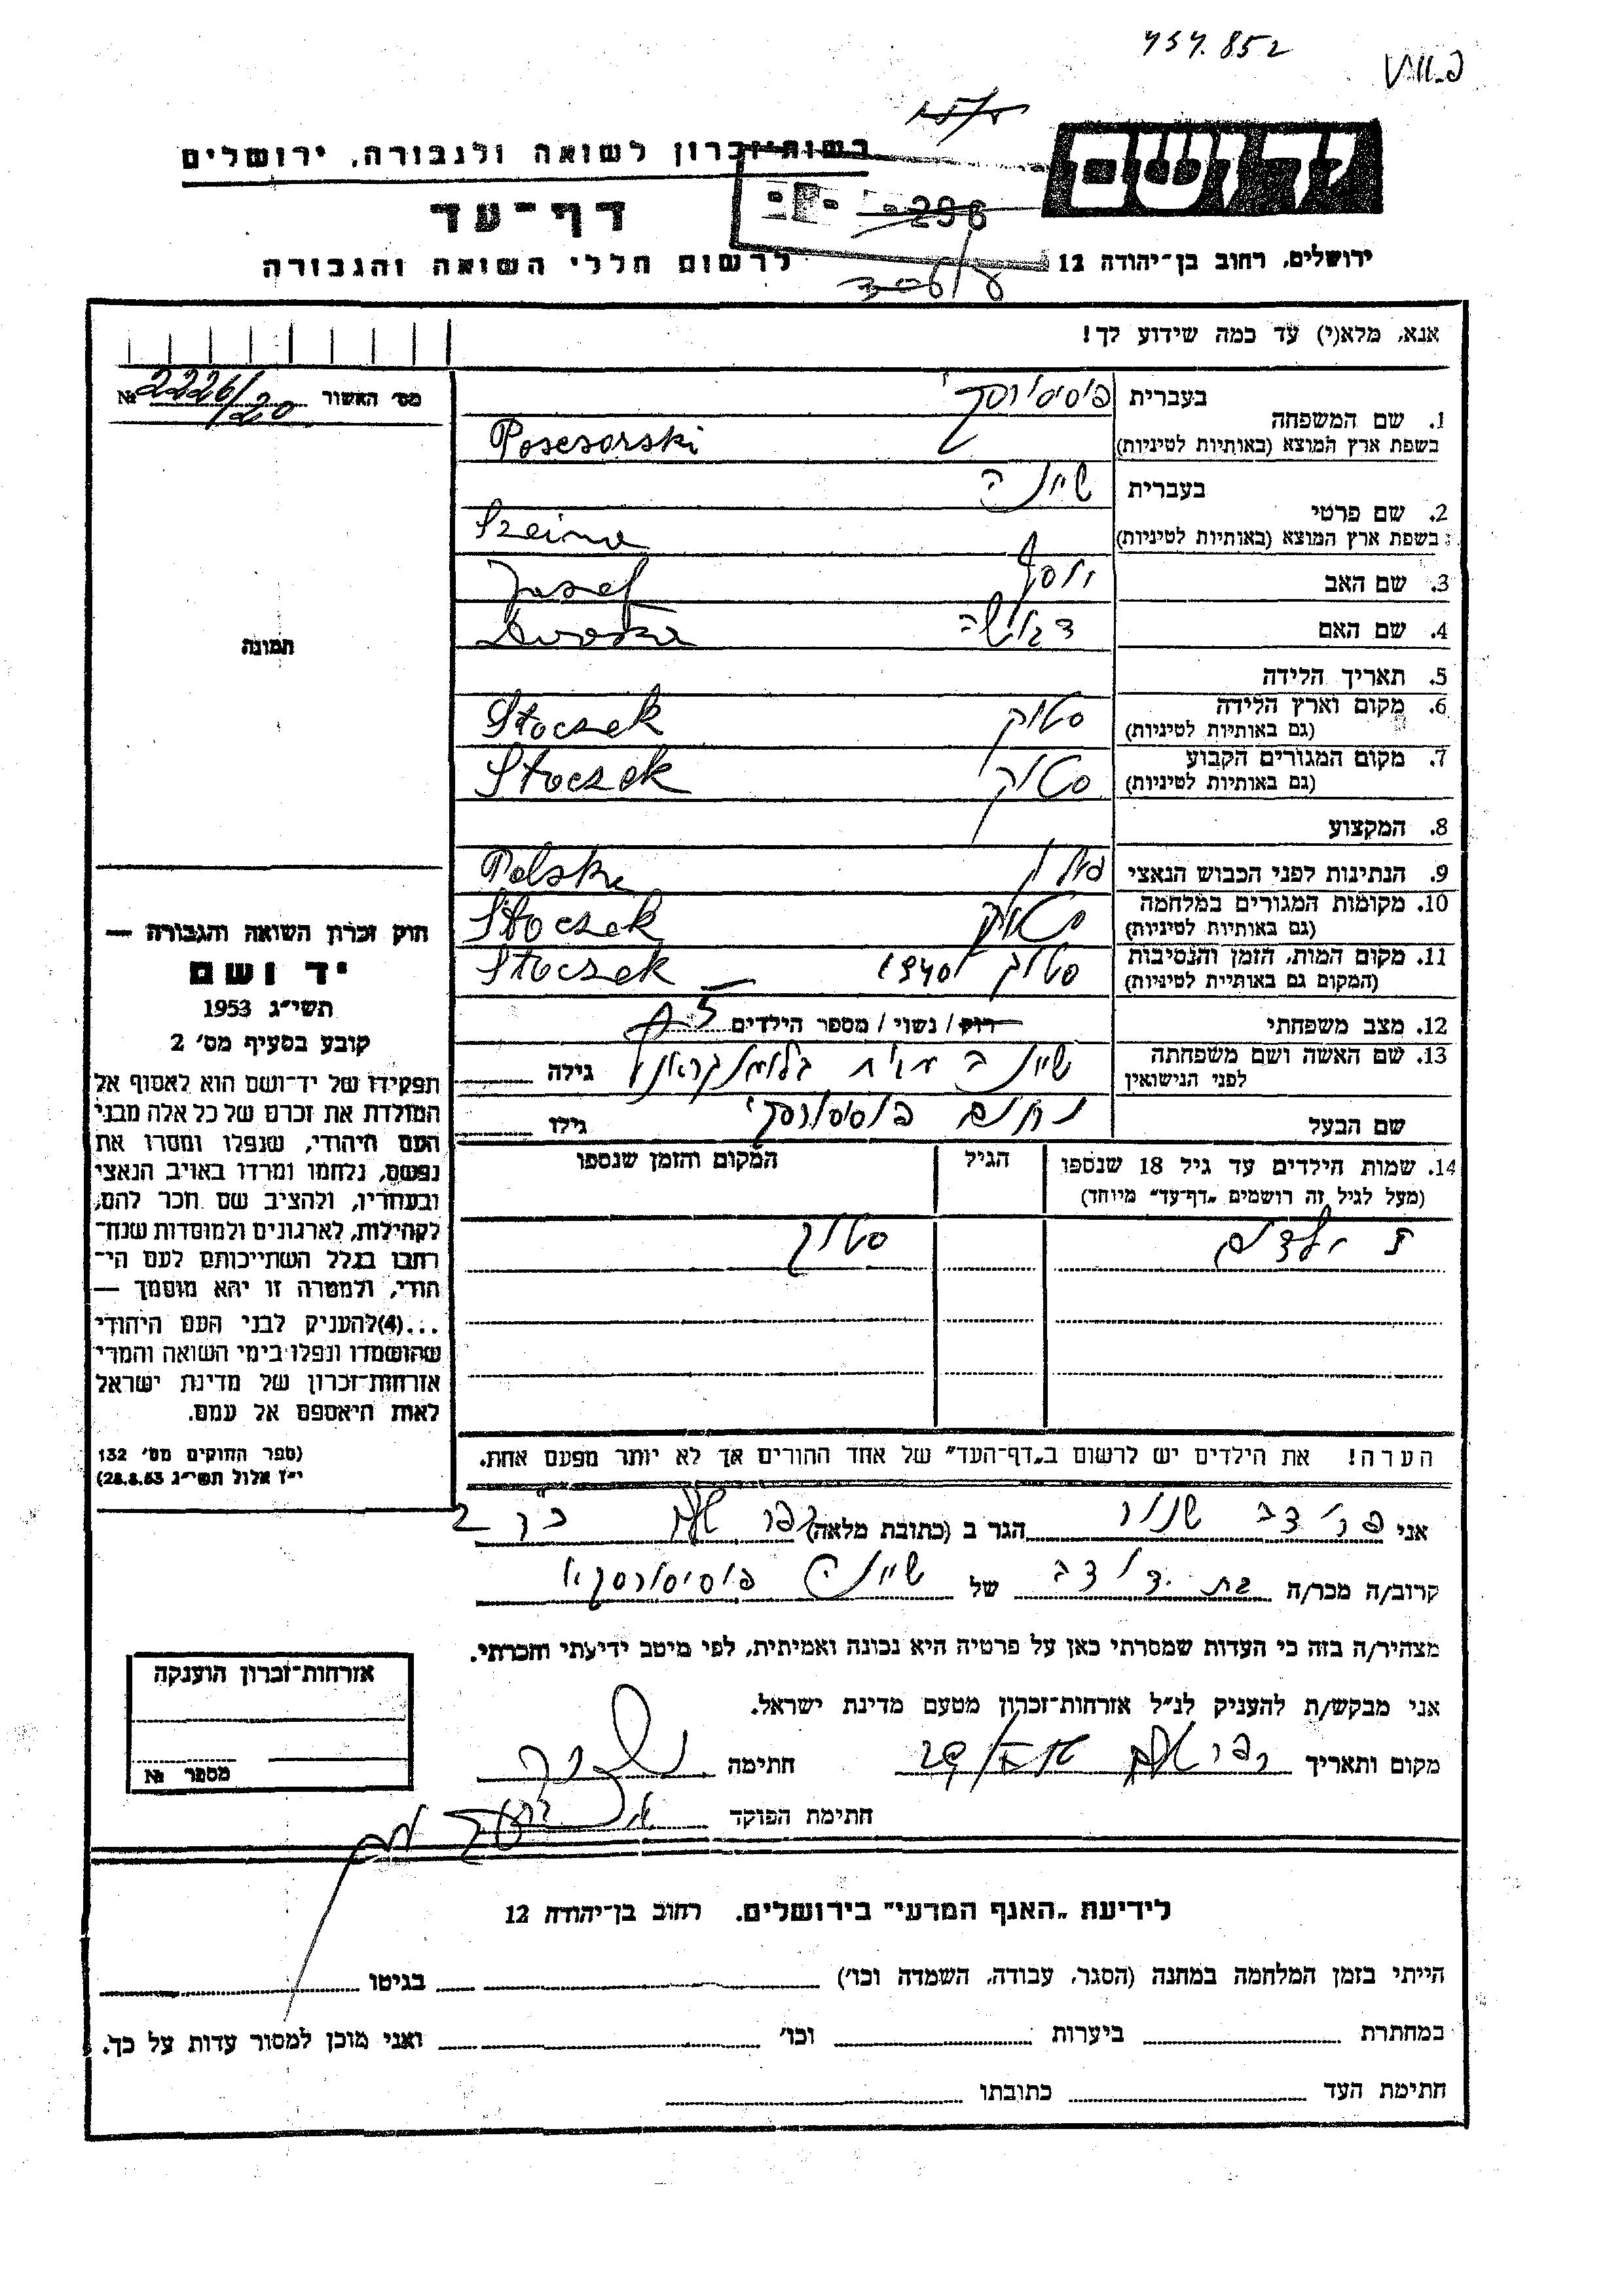 434.852
יד ושם
רשות זכרון לשואה ולגבורה, ירושלים
דף־עד
ירושלים, רחוב בן־יהודה 12
לרשום חללי השואה והגבורה
אנא, מלא(י) עד כמה שידוע לך!
מס׳ האשור № 2226/20
בעברית
1. שם המשפחה פוסיסורסקי
בשפת ארץ המוצא (באותיות לטיניות) Posesorski
בעברית שיינה
2. שם פרטי
בשפת ארץ המוצא (באותיות לטיניות) Szeina
3. שם האב יוסף Josef
4. שם האם
תמונה
5. תאריך הלידה
6. מקום וארץ הלידה סטוק Stoczek
(גם באותיות לטיניות)
7. מקום המגורים הקבוע סטוק Stoczek
(גם באותיות לטיניות)
8. המקצוע
9. הנתינות לפני הכבוש הנאצי פולין Polska
10. מקומות המגורים במלחמה סטוק Stoczek
(גם באותיות לטיניות)
11. מקום המות, הזמן והנסיבות סטוק 1940 Stoczek
(המקום גם באותיות לטיניות)
12. מצב משפחתי רווק / נשוי / מספר הילדים 5
13. שם האשה ושם משפחתה שיינה גילה
לפני הנישואין
שם הבעל נחום פוסיסורסקי גילו
14. שמות הילדים עד גיל 18 שנספו הגיל המקום והזמן שנספו
(מעל לגיל זה רושמים „דף־עד״ מיוחד)
ילדים סטוק
הערה! את הילדים יש לרשום ב„דף־העד״ של אחד ההורים אך לא יותר מפעם אחת.
חוק זכרון השואה והגבורה —
יד ושם
תשי״ג 1953
קובע בסעיף מס׳ 2
תפקידו של יד־ושם הוא לאסוף אל
המולדת את זכרם של כל אלה מבני
העם היהודי, שנפלו ומסרו את
נפשם, נלחמו ומרדו באויב הנאצי
ובעוזריו, ולהציב שם וזכר להם,
לקהילות, לארגונים ולמוסדות שנח־
רבו בגלל השתייכותם לעם הי־
הודי, ולמטרה זו יהא מוסמך —
...(4)להעניק לבני העם היהודי
שהושמדו ונפלו בימי השואה והמרי
אזרחות־זכרון של מדינת ישראל
לאות היאספם אל עמם.
(ספר החוקים מס׳ 132
י״ז אלול תשי״ג 28.8.53)
אני שניור הגר ב (כתובת מלאה)
קרוב/ה מכר/ה בת דודה של שיינה פוסיסורסקי
מצהיר/ה בזה כי העדות שמסרתי כאן על פרטיה היא נכונה ואמיתית, לפי מיטב ידיעתי והכרתי.
אני מבקש/ת להעניק לנ״ל אזרחות־זכרון מטעם מדינת ישראל.
מקום ותאריך חתימה
חתימת הפוקד
אזרחות־זכרון הוענקה
מספר №
לידיעת „האגף המדעי״ בירושלים. רחוב בן־יהודה 12
הייתי בזמן המלחמה במחנה (הסגר, עבודה, השמדה וכו׳) בגיטו
במחתרת ביערות וכו׳ ואני מוכן למסור עדות על כך.
חתימת העד כתובתו